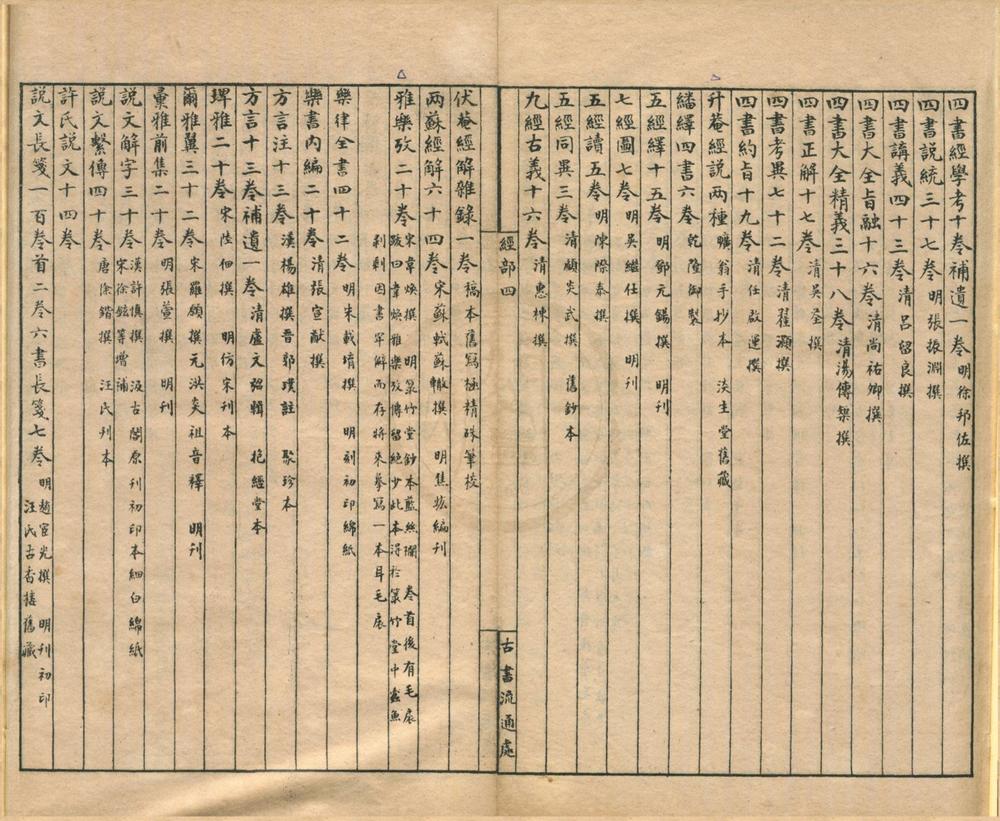 四書經學考十卷補遺一卷 明徐邦佐撰
四書說統三十七卷 明張振淵撰
四書講義四十三卷 清呂留良撰
四書大全旨融十六卷 清尚祐卿撰
四書大全精義三十八卷 清湯傳榘撰
四書正解十七卷 清吳荃撰
四書考異七十二卷 清翟灝撰
四書約旨十九卷 清任啟運撰
升菴經說兩種 曠翁手抄本 淡生堂舊藏
繙繹四書六卷 乾隆御製
五經繹十五卷 明鄧元錫撰 明刊
七經圖七卷 明吳繼仕撰 明刊
五經讀五卷 明陳際泰撰
五經同異三卷 清顧炎武撰 舊鈔本
九經古義十六卷 清惠棟撰
經部四
古書流通處
伏菴經解雜錄一卷 稿本舊寫極精硃筆校
兩蘇經解六十四卷 宋蘇軾蘇轍撰 明焦竑編刊
雅樂攷二十卷 宋韋煥撰 明菉竹堂鈔本藍絲闌 卷首後有毛扆
跋曰韋煥雅樂攷傳留絕少此本得於菉竹堂中蠹魚
剥剩因書罕解而存將來摹寫一本耳毛扆
樂律全書四十二卷 明朱載堉撰 明刻初印綿紙
樂書內編二十卷 清張宣猷撰
方言注十三卷 漢楊雄撰晉郭璞註 聚珍本
方言十三卷補遺一卷 清盧文弨輯 抱經堂本
埤雅二十卷 宋陸佃撰 明仿宋刊本
爾雅翼三十二卷 宋羅願撰元洪炎祖音釋 明刊
彙雅前集二十卷 明張萱撰 明刊
說文解字三十卷 漢許慎撰 汲古閣原刊初印本細白綿紙
宋徐鉉等增補
說文繫傳四十卷 唐徐鍇撰 汪氏刊本
許氏說文十四卷
說文長箋一百卷首二卷六書長箋七卷 明趙宧光撰 明刊初印
汪氏古香樓舊藏